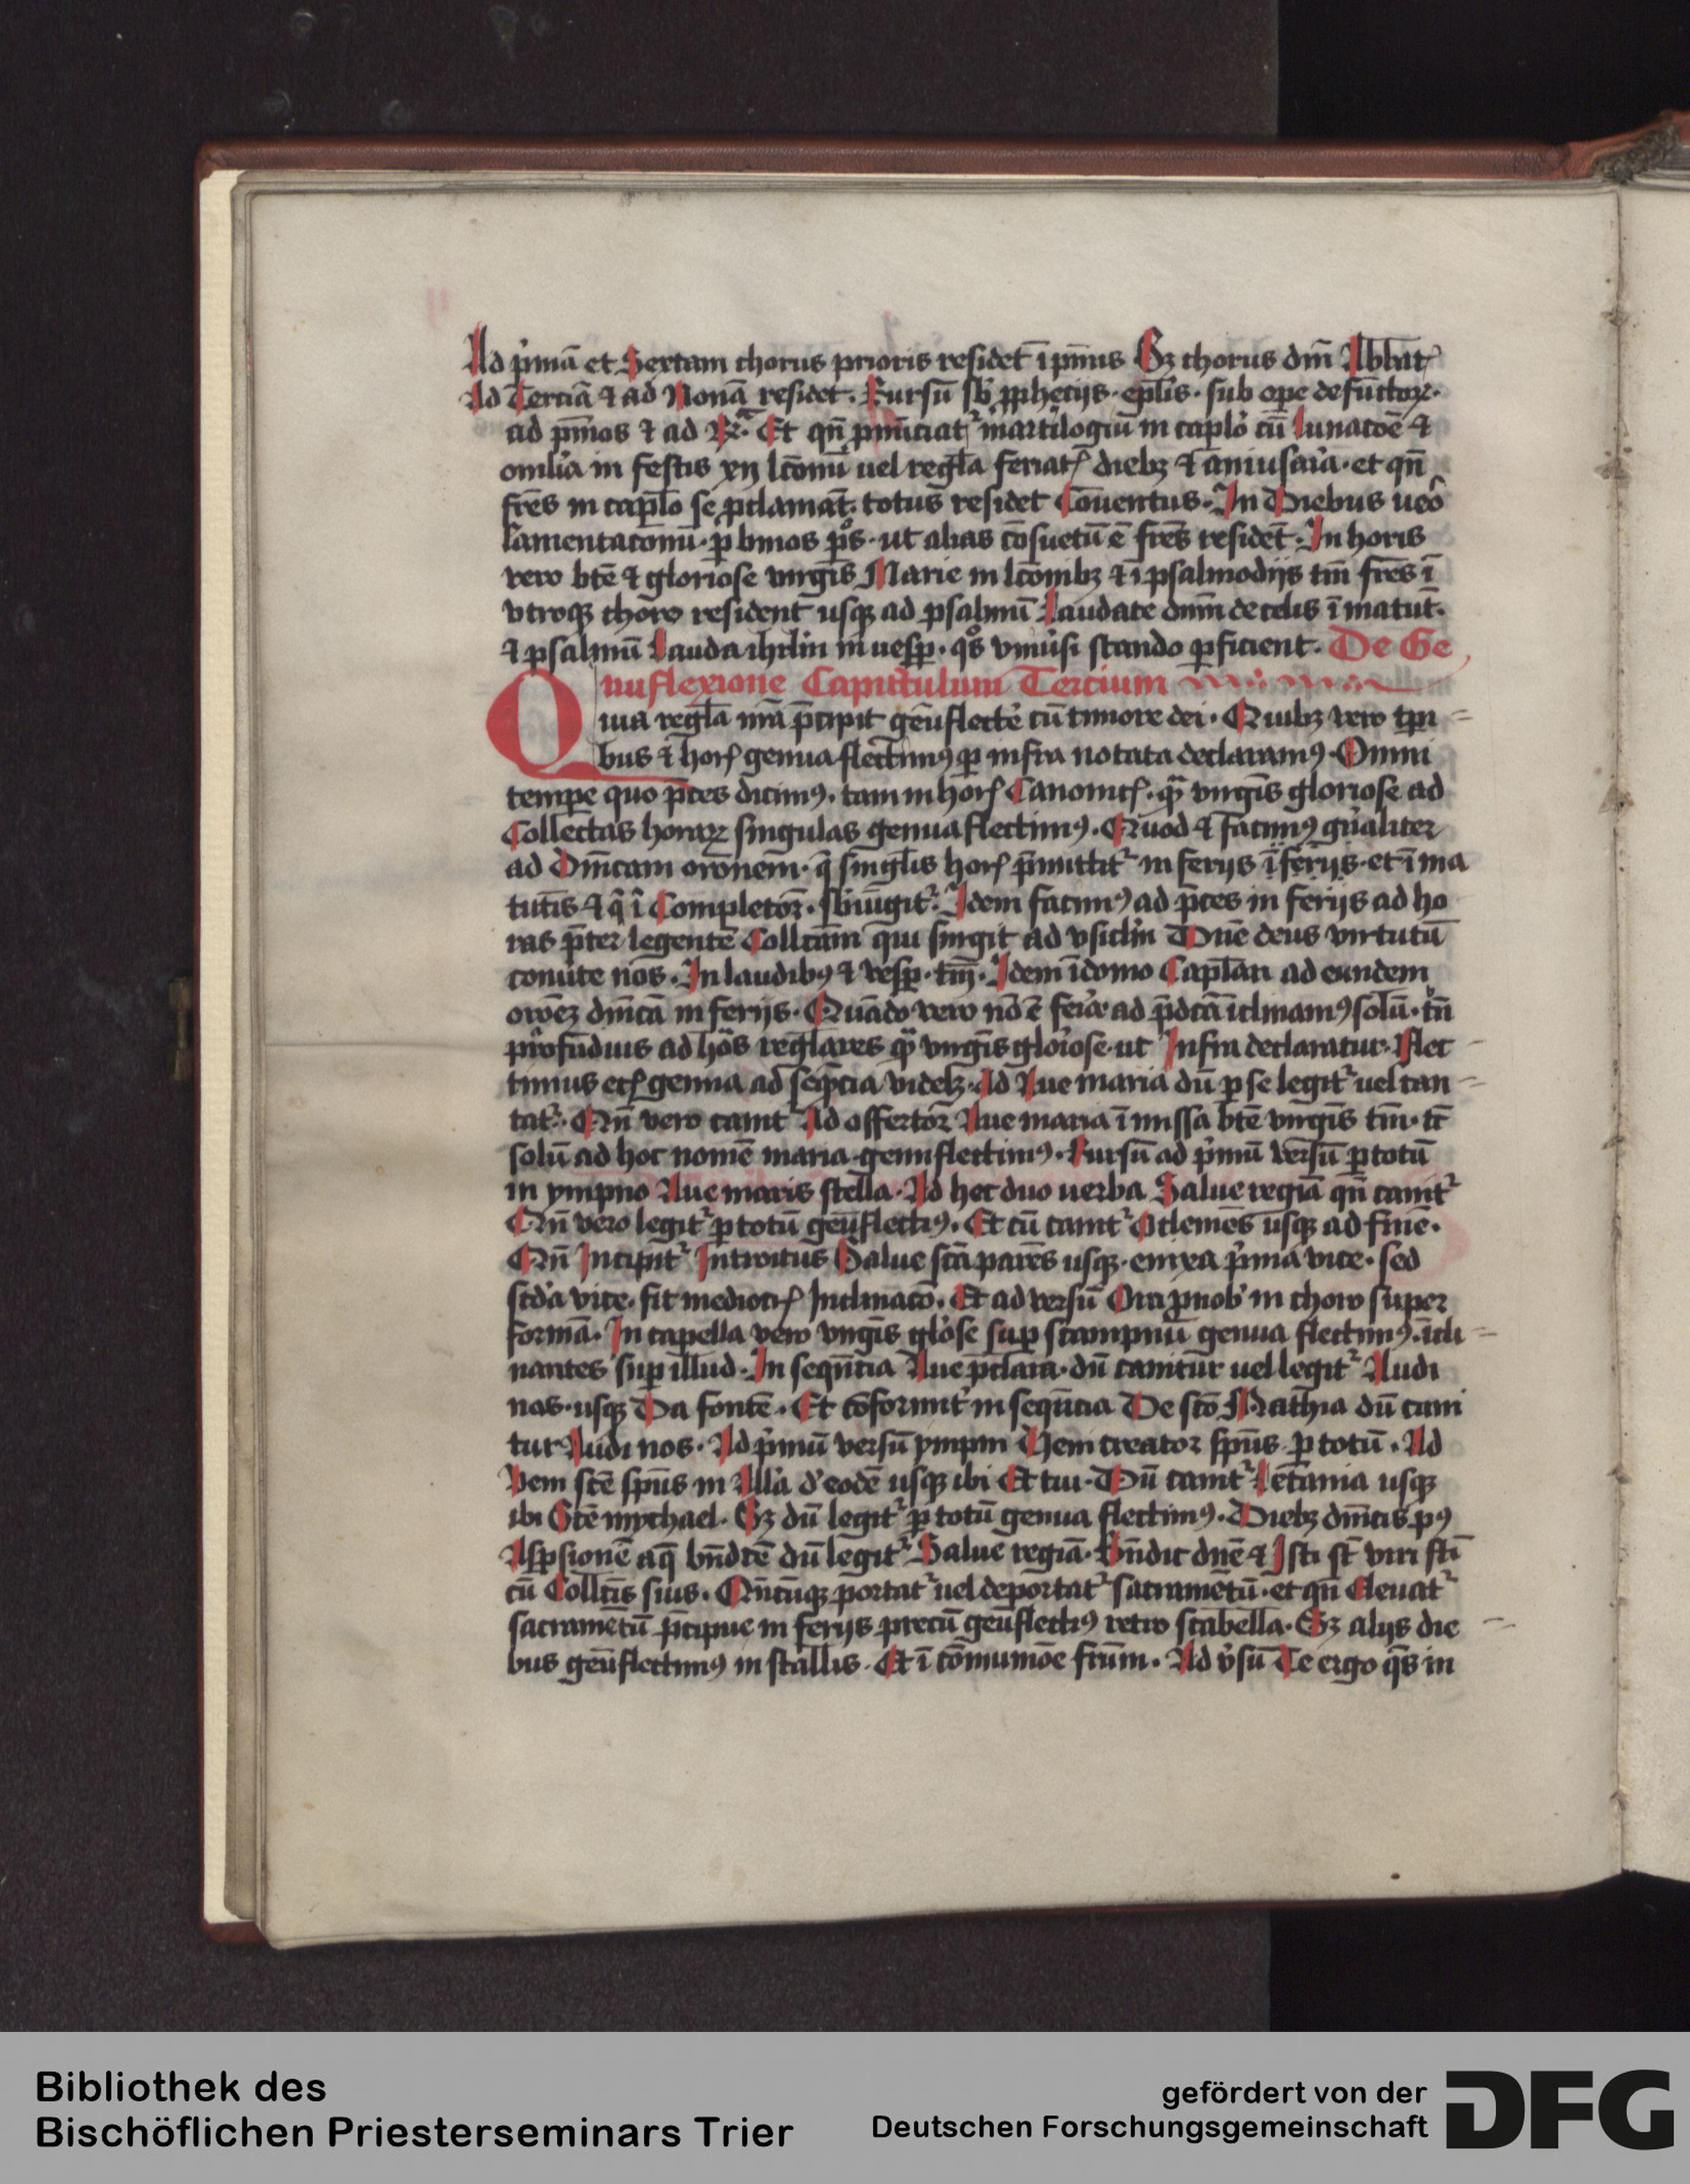 Ad p̓mā et Sextam chorus prioris residet̄ ī pm̄us Sꝫ chorus dn̄i Abbat̄
Ad Terciā ⁊ ad Nonā residet. Rursū sb̓ ꝓphecijs. ep̄lis. sub oꝑe defūctoꝝ.
ad pm̄os ⁊ ad Et qn̄ ꝓnūciat᷑ martilogiū in capl̓o cū lunacōe ⁊
omil̓ia in festis xij lcōnū uel regl̄a feriat diebꝫ ⁊ āniūsar̓ia. et qn̄
fr̄es in capl̄o se ꝓclamāt. totus residet Cōuentus. In Diebus ueō
lamentacōnū. ut alias cōsuetū ē fr̄es residēt. In horis
vero btē ⁊ gloriose virgīs Marie in lcōnibꝫ ⁊ ī psalmodijs tm̄ fr̄es ī
vtroqꝫ choro resident usqꝫ ad psalmū Laudate dn̄m de celis ī matut̄.
⁊ psalmū Lauda ihrl̄m in uesꝑ. qͦs vniūsi stando ꝑficient. De Ge
nuflexione Capittulum Tercium
Quia regl̄a nr̄a p̄cipit genūflecte̓ cū timore dei. Quibꝫ vero tꝑi
bus ⁊ hor̄ genua flectimꝰ ꝑ infra notata declaramꝰ. Omni
temꝑe quo p̄ces dicimꝰ. tam in hor̄ Canonic̄. qᷓ virgīs gloriose ad
Collectas horaꝝ singulas genua flectimꝰ. Quod ⁊ facimꝰ gn̓aliter
ad Dn̄icam orōnem. q̄ singl̄is hor̄ p̄mittit᷑ in ferijs et ī ma
tutīs ⁊ q̄ ī Completor̄. sbiūgit᷑. Idem facimꝰ ad p̄ces in ferijs ad ho
ras p̄ter legentē Collcām qui surgit ad v̓sicl̓m Dn̄e deus virtutū
conūte nos. In laudibꝰ ⁊ vesꝑ. tm̄. Idem ī domo Capl̄ari ad eundem
orōeꝫ dn̄icā in ferijs. Quādo vero nō ē fer̓ie ad p̄dcā īclinamꝰ solū. tn̄
ꝓfūdius ad ho̓s regl̄ares qᷓ virgīs glor̓iose. ut Infra declaratur. Flec
timus ec̄ genua ad seqn̄cia videlꝫ. Ad Aue maria dū ꝑ se legit᷑ uel can
tat᷑. Qn̄ vero canit᷑ Ad offertor̄ Aue maria ī missa btē virgīs tm̄. tc̄
solū ad hoc nomē maria genuflectimꝰ. Rursū ad p̓mū versū ꝑ totū
in ympno Aue maris stella. Ad hec duo uerba Salue regīa qn̄ canit᷑
Qn̄ vero legit᷑ ꝑ totū genūflectiꝰ. Et cū canit᷑ O clemēs usqꝫ ad finē.
Qn̄ Incipit᷑ Introitus Salue scā parēs usqꝫ. enixa p̓ma vice. sed
scd̓a vice. fit mediocr̄ Inclinacō. Et ad versū Ora ꝓ nob̓ in choro super
formā. In capella vero virgīs glo̓se suꝑ scampnū genua flectimꝰ. īcli
nantes suꝑ illud. In sequn̄cia Aue p̄clara. dū canitur uel legit᷑ Audi
nos. usqꝫ Da fontē. Et cōformit̓ in sequn̄cia De scō Mathia dū cani
tur Audi nos. Ad p̓mū versū ympni Veni creator sp̄us ꝑ totū. Ad
Veni scē sp̄us in All̓a d̓ eodē usqꝫ ibi Et tui. Dū canit᷑ Letania usqꝫ
ibi Scē mychael. Sꝫ dū legit᷑ ꝑ totū genua flectimꝰ. Diebꝫ dn̄icis. pꝰ
Asꝑsionē aq̄ bn̄dcē dū legit᷑ Salue regīa. Bn̄dic dn̄e ⁊ Isti st̄ viri scī
cū Collcīs suis. Qn̄cūqꝫ portat᷑ uel deportat᷑ sacramētū. et qn̄ Eleuat᷑
sacramētū p̄cipue in ferijs precū genūflectiꝰ retro scabella. Sꝫ alijs die
bus genūflectimꝰ in stallis. Et ī cōmuniōe fr̄um. Ad v̓sū Te ergo qs̄ in
Bibliothek des
Bischöflichen Priesterseminars Trier
gefördert von der
Deutschen Forschungsgemeinschaft
DFG